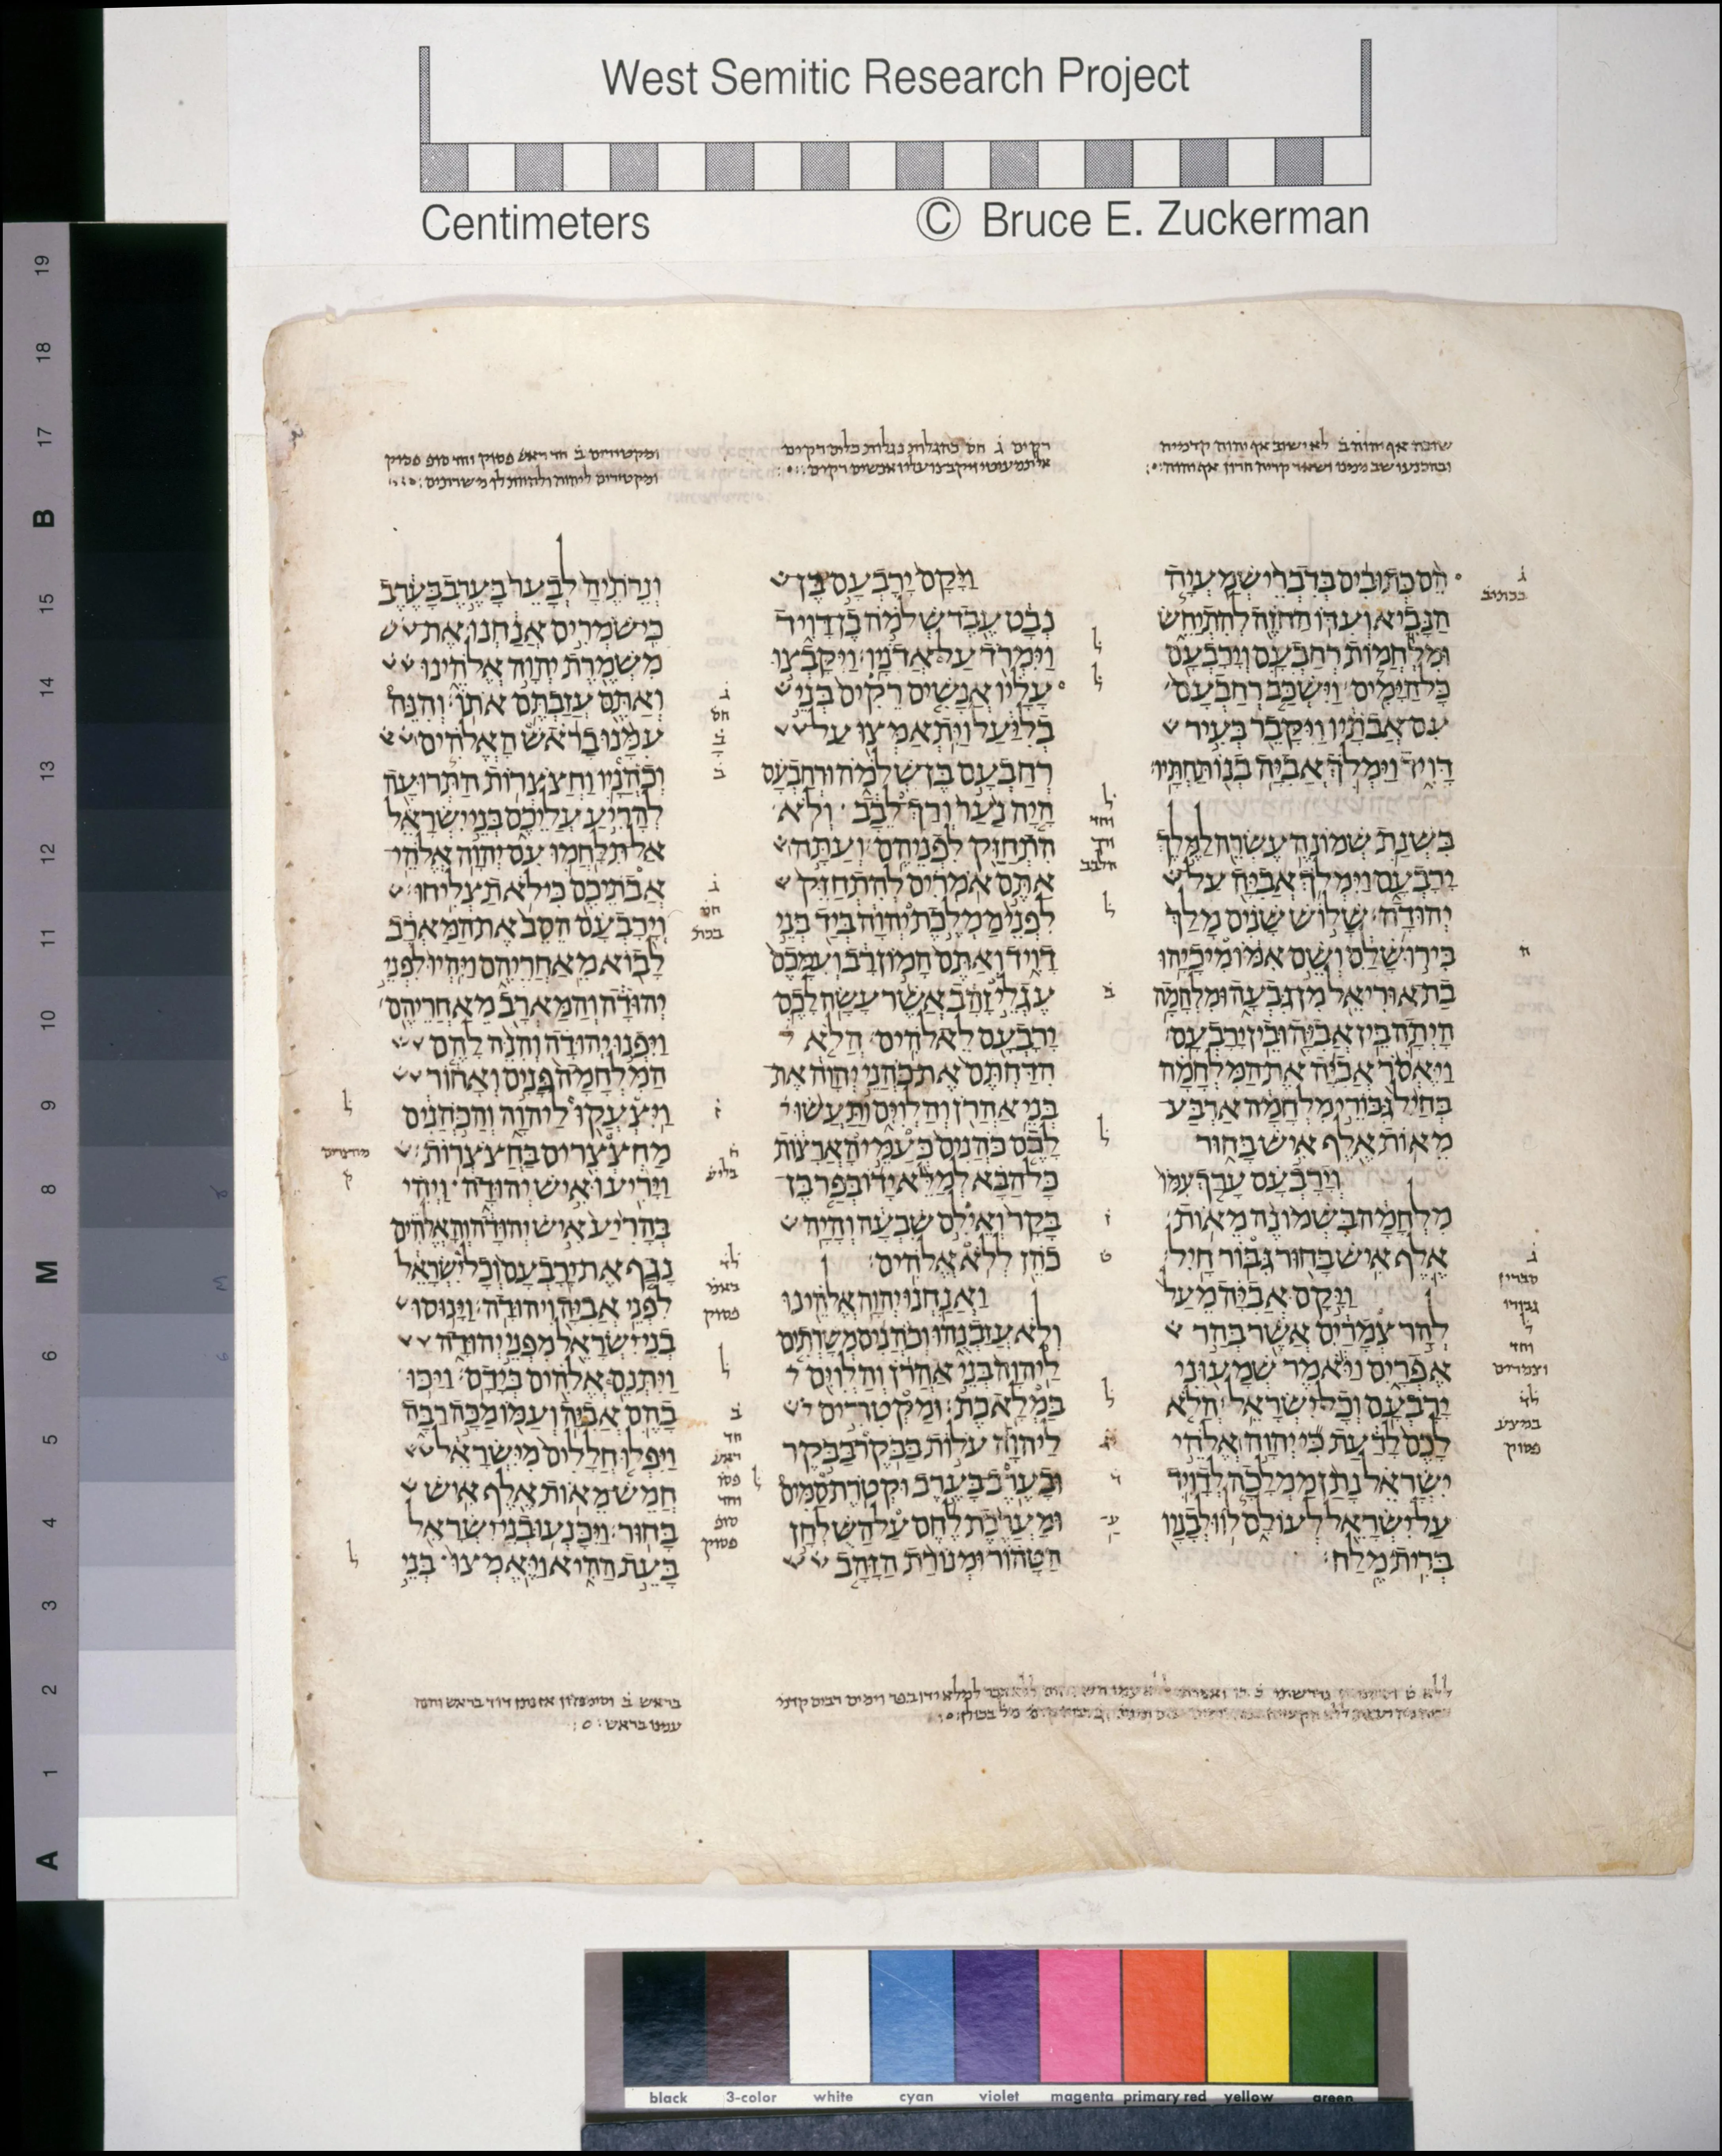 West Semitic Research Project
Centimeters © Bruce E. Zuckerman
שובה אף יהוה ב לא ישוב אף יהוה קדמיה
ובהכנעו שב ממנו ושאר קריה חרון אף יהוה
הֵם כְּתוּבִים בְּדִבְרֵי שְׁמַעְיָה
הַנָּבִיא וְעִדּוֹ הַחֹזֶה לְהִתְיַחֵשׂ
וּמִלְחֲמוֹת רְחַבְעָם וְיָרָבְעָם
כָּל הַיָּמִים׃ וַיִּשְׁכַּב רְחַבְעָם
עִם אֲבֹתָיו וַיִּקָּבֵר בְּעִיר
דָּוִיד וַיִּמְלֹךְ אֲבִיָּה בְנוֹ תַּחְתָּיו׃
בִּשְׁנַת שְׁמוֹנֶה עֶשְׂרֵה לַמֶּלֶךְ
יָרָבְעָם וַיִּמְלֹךְ אֲבִיָּה עַל
יְהוּדָה׃ שָׁלוֹשׁ שָׁנִים מָלַךְ
בִּירוּשָׁלַ͏ִם וְשֵׁם אִמּוֹ מִיכָיָהוּ
בַת אוּרִיאֵל מִן גִּבְעָה וּמִלְחָמָה
הָיְתָה בֵּין אֲבִיָּה וּבֵין יָרָבְעָם׃
וַיֶּאְסֹר אֲבִיָּה אֶת הַמִּלְחָמָה
בְּחַיִל גִּבּוֹרֵי מִלְחָמָה אַרְבַּע
מֵאוֹת אֶלֶף אִישׁ בָּחוּר
וְיָרָבְעָם עָרַךְ עִמּוֹ
מִלְחָמָה בִּשְׁמוֹנֶה מֵאוֹת
אֶלֶף אִישׁ בָּחוּר גִּבּוֹר חָיִל׃
וַיָּקָם אֲבִיָּה מֵעַל
לְהַר צְמָרַיִם אֲשֶׁר בְּהַר
אֶפְרָיִם וַיֹּאמֶר שְׁמָעוּנִי
יָרָבְעָם וְכָל יִשְׂרָאֵל׃ הֲלֹא
לָכֶם לָדַעַת כִּי יְהוָה אֱלֹהֵי
יִשְׂרָאֵל נָתַן מַמְלָכָה לְדָוִיד
עַל יִשְׂרָאֵל לְעוֹלָם לוֹ וּלְבָנָיו
בְּרִית מֶלַח׃
ג
בכתיב
ח
ג
סברין
גבורי
ל
וחד
וצמרים
לד
במצע
פסוק
רקים ג חס כהגלות נגלות כלים רקים
אלתמעטי ויקבצו עליו אנשים רקים
וַיָּקָם יָרָבְעָם בֶּן
נְבָט עֶבֶד שְׁלֹמֹה בֶן דָּוִיד
וַיִּמְרֹד עַל אֲדֹנָיו׃ וַיִּקָּבְצוּ
עָלָיו אֲנָשִׁים רֵקִים בְּנֵי
בְלִיַּעַל וַיִּתְאַמְּצוּ עַל
רְחַבְעָם בֶּן שְׁלֹמֹה וּרְחַבְעָם
הָיָה נַעַר וְרַךְ לֵבָב וְלֹא
הִתְחַזַּק לִפְנֵיהֶם׃ וְעַתָּה
אַתֶּם אֹמְרִים לְהִתְחַזֵּק
לִפְנֵי מַמְלֶכֶת יְהוָה בְּיַד בְּנֵי
דָוִיד וְאַתֶּם הָמוֹן רָב וְעִמָּכֶם
עֶגְלֵי זָהָב אֲשֶׁר עָשָׂה לָכֶם
יָרָבְעָם לֵאלֹהִים׃ הֲלֹא
הִדַּחְתֶּם אֶת כֹּהֲנֵי יְהוָה אֶת
בְּנֵי אַהֲרֹן וְהַלְוִיִּם וַתַּעֲשׂוּ
לָכֶם כֹּהֲנִים כְּעַמֵּי הָאֲרָצוֹת
כָּל הַבָּא לְמַלֵּא יָדוֹ בְּפַר בֶּן
בָּקָר וְאֵילִם שִׁבְעָה וְהָיָה
כֹהֵן לְלֹא אֱלֹהִים׃
וַאֲנַחְנוּ יְהוָה אֱלֹהֵינוּ
וְלֹא עֲזַבְנֻהוּ וְכֹהֲנִים מְשָׁרְתִים
לַיהוָה בְּנֵי אַהֲרֹן וְהַלְוִיִּם
בַּמְלָאכֶת׃ וּמַקְטִרִים
לַיהוָה עֹלוֹת בַּבֹּקֶר בַּבֹּקֶר
וּבָעֶרֶב בָּעֶרֶב וּקְטֹרֶת סַמִּים
וּמַעֲרֶכֶת לֶחֶם עַל הַשֻּׁלְחָן
הַטָּהוֹר וּמְנוֹרַת הַזָּהָב
ל
ל
ל
וחד
ורך
הלבב
ל
ב
ל
ז
ט
ל
ומקטירים ב חד ראש פסוק וחד סוף פסוק
ומקטירים ליהוה ולהיות לו משרתים
וְנֵרֹתֶיהָ לְבָעֵר בָּעֶרֶב בָּעֶרֶב
כִּי שֹׁמְרִים אֲנַחְנוּ אֶת
מִשְׁמֶרֶת יְהוָה אֱלֹהֵינוּ
וְאַתֶּם עֲזַבְתֶּם אֹתוֹ׃ וְהִנֵּה
עִמָּנוּ בָרֹאשׁ הָאֱלֹהִים
וְכֹהֲנָיו וַחֲצֹצְרוֹת הַתְּרוּעָה
לְהָרִיעַ עֲלֵיכֶם בְּנֵי יִשְׂרָאֵל
אַל תִּלָּחֲמוּ עִם יְהוָה אֱלֹהֵי
אֲבֹתֵיכֶם כִּי לֹא תַצְלִיחוּ׃
וְיָרָבְעָם הֵסֵב אֶת הַמַּאְרָב
לָבוֹא מֵאַחֲרֵיהֶם וַיִּהְיוּ לִפְנֵי
יְהוּדָה וְהַמַּאְרָב מֵאַחֲרֵיהֶם׃
וַיִּפְנוּ יְהוּדָה וְהִנֵּה לָהֶם
הַמִּלְחָמָה פָּנִים וְאָחוֹר
וַיִּצְעֲקוּ לַיהוָה וְהַכֹּהֲנִים
מַחְצְצרִים בַּחֲצֹצְרוֹת׃
וַיָּרִיעוּ אִישׁ יְהוּדָה וַיְהִי
בְּהָרִיעַ אִישׁ יְהוּדָה וְהָאֱלֹהִים
נָגַף אֶת יָרָבְעָם וְכָל יִשְׂרָאֵל
לִפְנֵי אֲבִיָּה וִיהוּדָה׃ וַיָּנוּסוּ
בְנֵי יִשְׂרָאֵל מִפְּנֵי יְהוּדָה
וַיִּתְּנֵם אֱלֹהִים בְּיָדָם׃ וַיַּכּוּ
בָהֶם אֲבִיָּה וְעַמּוֹ מַכָּה רַבָּה
וַיִּפְּלוּ חֲלָלִים מִיִּשְׂרָאֵל
חֲמֵשׁ מֵאוֹת אֶלֶף אִישׁ
בָּחוּר׃ וַיִּכָּנְעוּ בְנֵי יִשְׂרָאֵל
בָּעֵת הַהִיא וַיֶּאֶמְצוּ בְּנֵי
ג
חס
ב
ב
ג
חס
בכת
ז
ח
בליש
לד
באמ
פסוק
ל
ב
חד
ראש
פסו
וחד
סוף
פסוק
ל
מחצרים
ק
ל
בראש ב וסימנהון אז נתן דויד בראש והנה
עמנו בראש
19
18
17
B
15
14
13
12
11
10
9
8
M
6
5
4
3
2
1
A
black 3-color white cyan violet magenta primary red yellow green